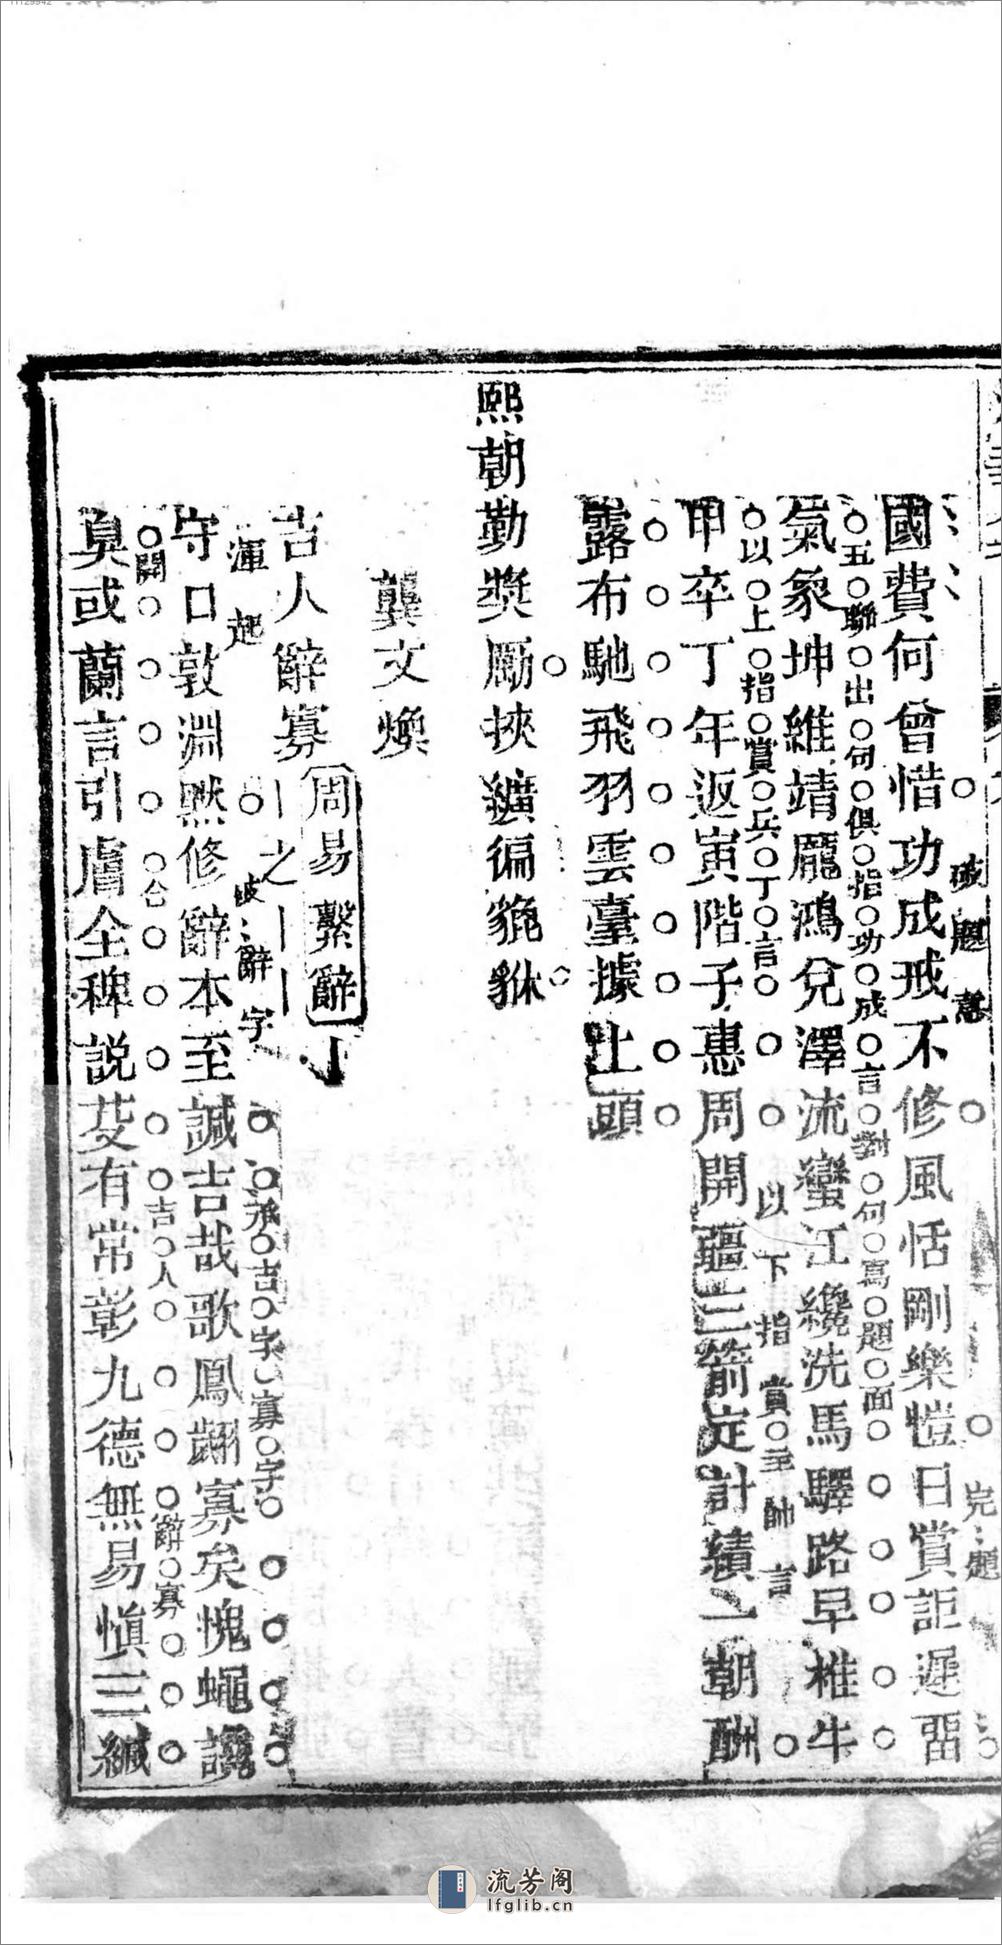 國費何曾惜功成戒不修風恬剛樂愷日賞詎遲畱
破題意
完題
氣象坤維靖龎鴻兌澤流蠻江纔洗馬驛路早椎牛
五聯出何俱指功成言對何寫題面
甲卒丁年返寅階子惠周開疆三箭定計績一朝酬
以上指賞兵丁言
以下指賞主帥言
露布馳飛羽雲臺據上頭
熙朝勤獎勵挾纊徧貔貅
龔文煥
吉人辭寡 周易繫辭
丨之丨丨
守口敦淵默修辭本至誠吉哉歌鳳翽寡矣愧蠅讒
渾起
破辭字
承吉字寡字
臭或蘭言引膚全稗説芟有常彰九德無易愼三緘
開合
吉人
辭寡
流芳阁
lfglib.cn